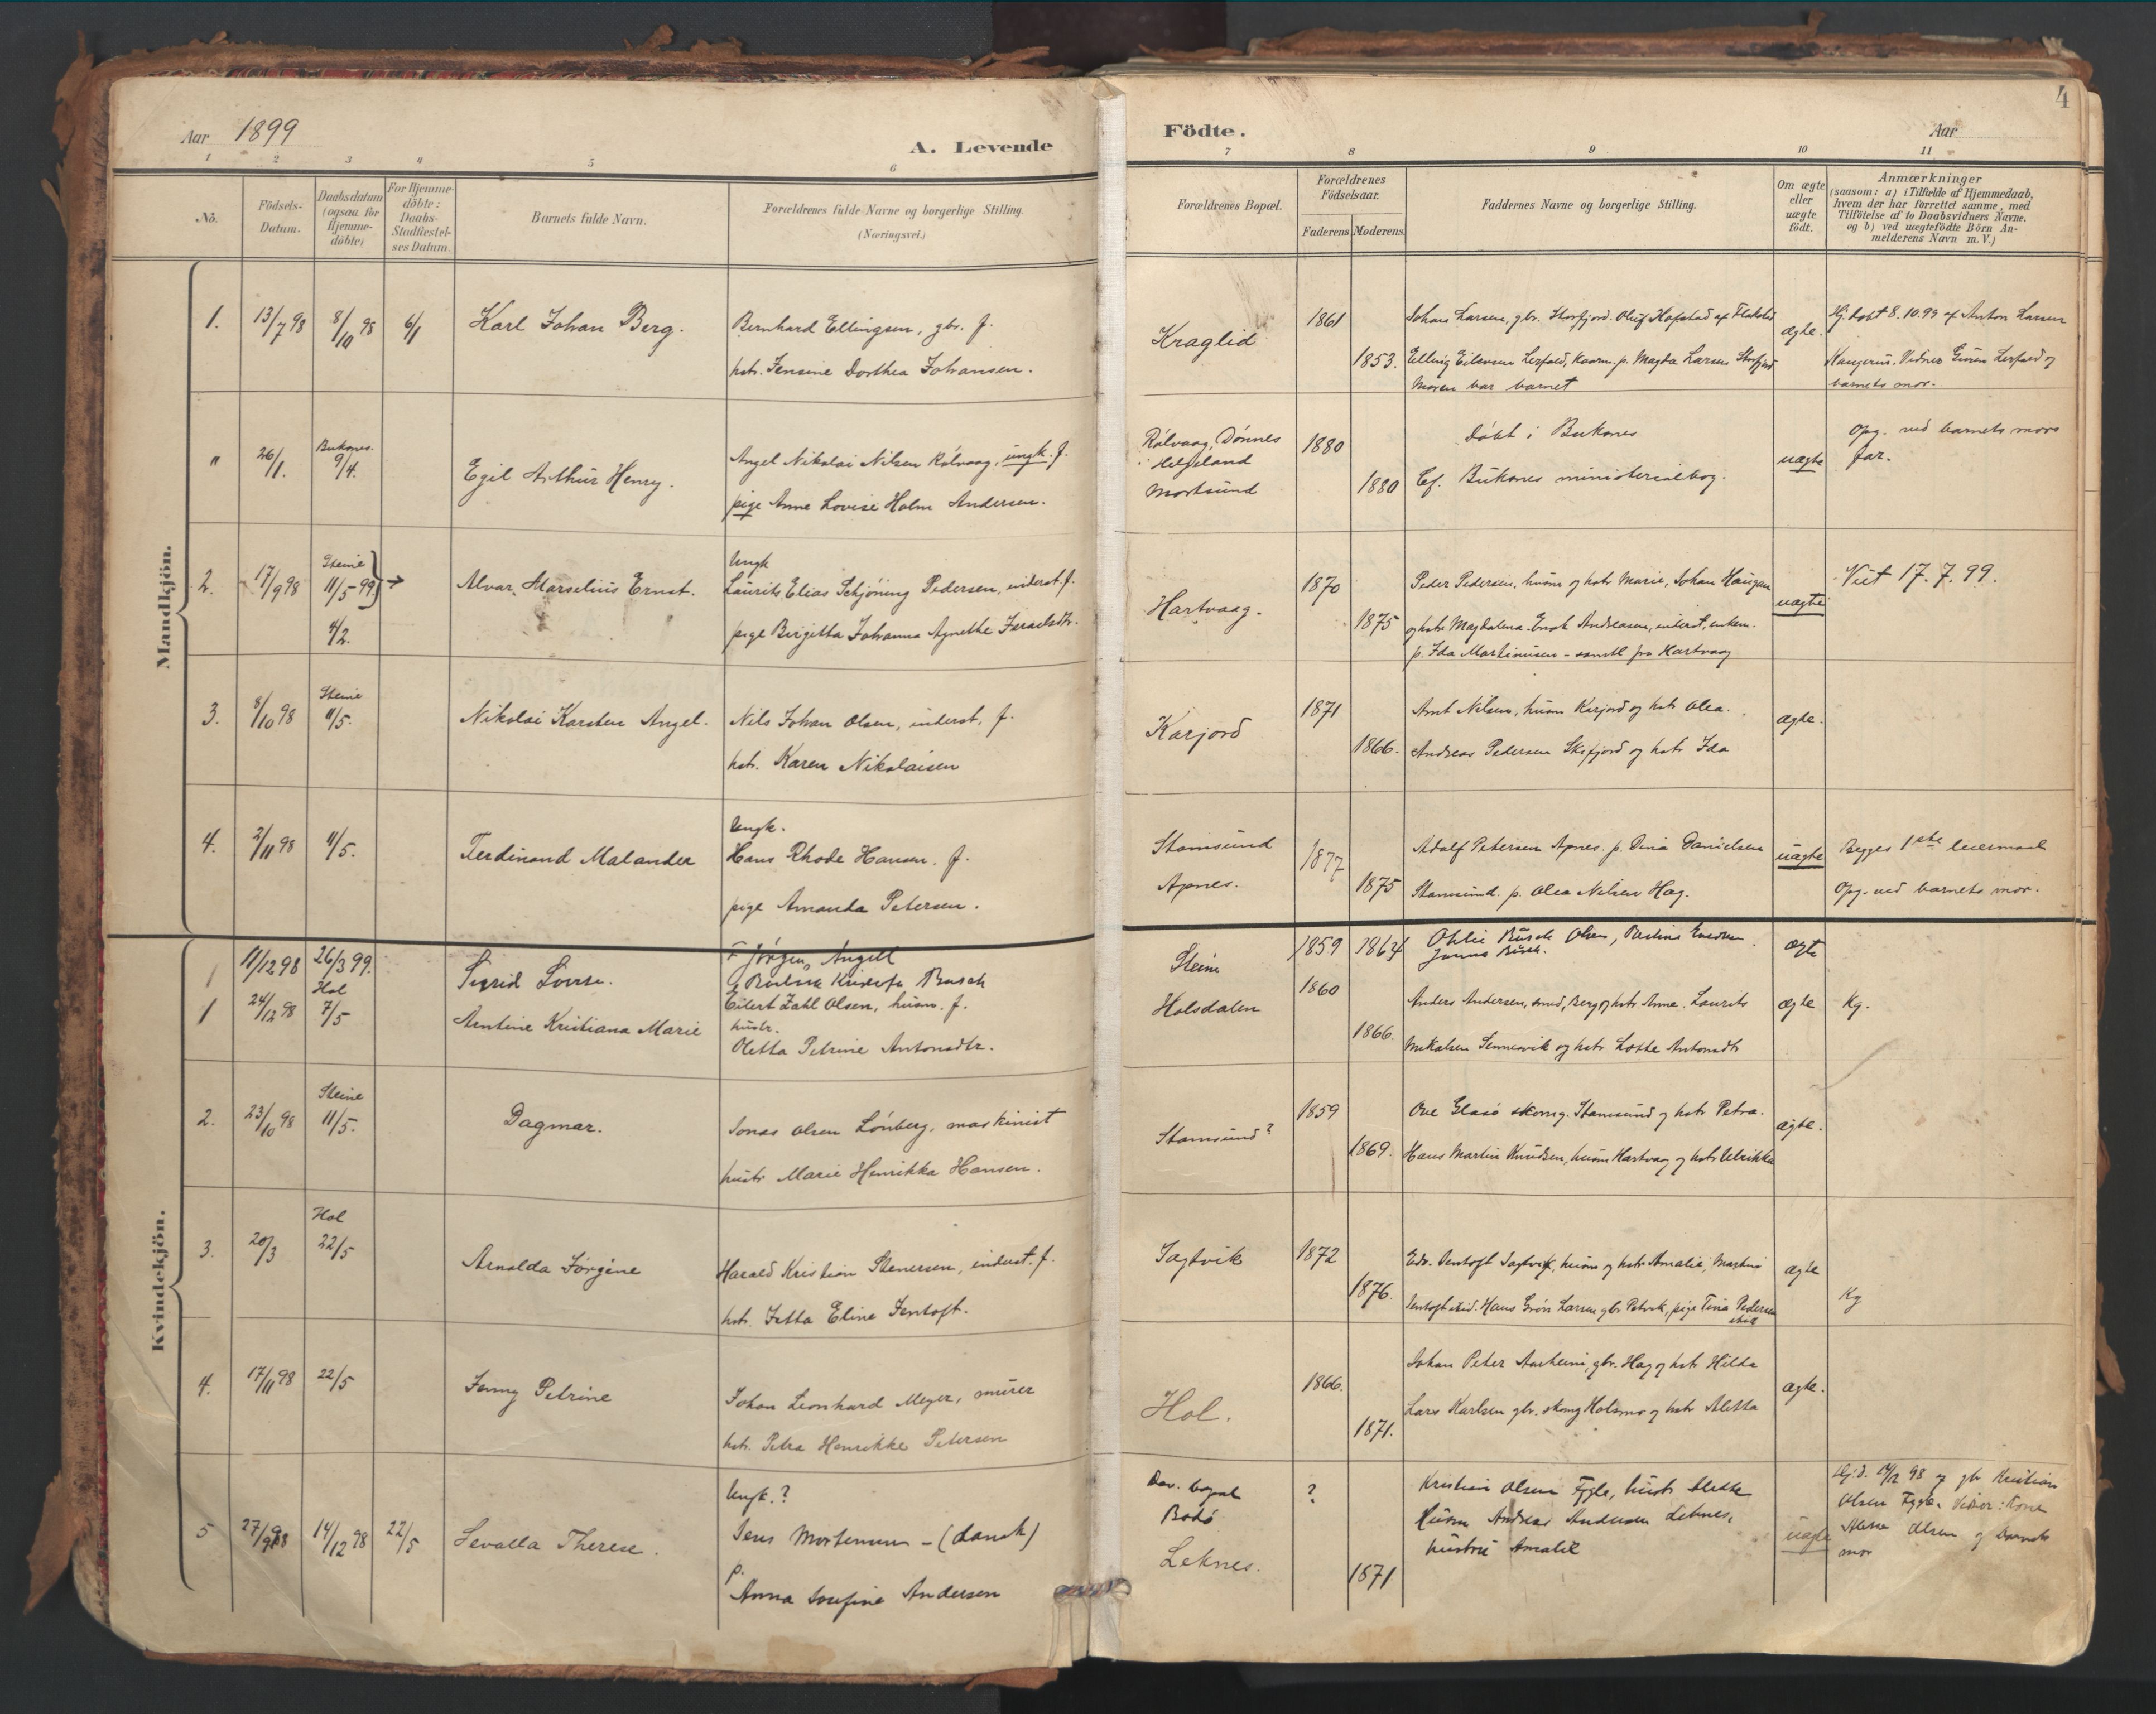 4
Aar 1899
A. Levende
Födte.
Aar
1 2 3 4 5 6 7 8 9 10 11
No.
Födsels-Datum.
Daabsdatum (ogsaa for Hjemme-döbte)
For Hjemme-döbte: Daabs-Stadfæstel-ses Datum.
Barnets fulde Navn.
Forældrenes fulde Navne og borgerlige Stilling.
(Næringsvei.)
Forældrenes Bopæl.
Forældrenes Födselsaar.
Faderens Moderens
Faddernes Navne og borgerlige Stilling.
Om ægte eller uægte födt.
Anmærkninger
(saasom: a) i Tilfælde af Hjemmedaab,
hvem der har forrettet samme, med
Tilföielse af to Daabsvidners Navne.
og b) ved uægtefödte Börn An-
melderens Navn m. V.)
Mandkjön.
1. 13/7 98 8/10 98 6/1 Karl Johan Berg. Bernhard Ellingsen, gbr. f.
hstr. Jensine Dorthea Johansen.
Kraglid 1861 1853.
Johan Larsen, gbr. Storfjord. Oluf Hopstad af Flakstad
Elling Eilertsen Lerfald, p. Magda Larsen Storfjord
Moren bar barnet
ægte.
Hj. døbt 8.10.99 af Anton Larsen
Vidner Lerfald og
barnets mor.
" 26/1. Buksnes 9/4. Egil Arthur Henry. Angel Nikolai Nilsen Rólvaag, ungk. f.
pige Anne Lovise Holm Andersen.
Rólvaag, Dónnes
i Helgeland
Mortsund
1880 1880
Dóbt i Buksnes
Cf. Buksnes ministerialbog.
uægte
Opg. ved barnets mors
far.
2. 17/9 98 Steine 11/5-99 4/2. Alvar Marselius Ernst. Ungk
Laurits Elias Schjöning Pedersen, inderst. f.
pige Birgitta Johanna Agnethe Israelsdtr.
Hartvaag. 1870 1875
Peder Pedersen, husm og hstr Marie, Johan Haugen
og hstr Magdalena. Enok Andreasen, inderst, enkem.
p. Ida Martinusen - samtl fra Hartvaag
uægte
Viet 17.7.99.
3. 8/10 98 Steine 11/5. Nikolai Karsten Angel. Nils Johan Olsen, inderst, f.
hstr. Karen Nikolaisen
Karjord 1871 1866.
Arnt Nilsen, husm Karjord og hstr Olea.
Andreas Pedersen Skifjord og hstr Ida
ægte.
4. 2/11 98 11/5. Ferdinand Malander Ungk.
Hans Rhode Hansen. f.
pige Amanda Petersen.
Stamsund
Apnes.
1877 1875
Adolf Petersen Apnes. p. Dina Danielsen
Stamsund. p. Olea Nilsen Hag.
uægte
Begges 1ste leiermaal
Opg. ved barnets mor.
Kvindekjön.
1 11/12 98 26/3 99. Sigrid Lovise. F Jørgen Angell
Busch
Steine 1859 1864
Othlie Busch Olsen,
Busch.
ægte
1 24/12 98 Hol 7/5 Arntine Kristiana Marie Eilert Zahl Olsen, husm. f.
hustr.
Oletta Petrine Antonsdtr.
Holsdalen 1860 1866.
Anders Andersen, smed, Berg og hstr Anna. Laurits
Mikalsen Sennesvik og hstr Lotte Antonsdtr
ægte Kg.
2. 23/10 98 Steine 11/5. Dagmar. Jonas Olsen Lónberg, maskinist
hustr Marie Henrikka Hansen.
Stamsund? 1859 1869.
Ove Glasó skomg. Stamsund og hstr Petra.
Hans Martin Knudsen, husm Hartvaag og hstr Ulrikka
ægte.
3. 20/3 Hol 22/5 Arnolda Jørgine Harald Kristian Stenersen, inderst. f.
hstr. Jetta Eline Jentoft.
Jagtvik 1872 1876.
Edv. Jentoft Jagtvik, husm og hstr Amalie, Martin
Jentoft ibid. Hans Grón Larsen gbr Petvik, pige Tina Pedersen
ibid
ægte Kg
4. 17/11 98 22/5 Jenny Petrine Johan Leonhard Meyer, murer
hstr. Petra Henrikke Petersen
Hol. 1866. 1871.
Johan Peter Aarheim, gbr. Hag og hstr Hilda
Lars Karlsen gbr. skomg Holsmo og hstr Aletta
ægte.
5 27/9 98 14/12 98 22/5 Sevalla Therese. Ungk.?
Jens Mortensen - (dansk)
p.
Anna Josefine Andersen
Bodó
Leknes.
? 1871
Kristian Olsen Fygle, hustr Aletta
Husm Andreas Andersen Leknes,
hustru Amalie
uægte
Hj.d. 14/12 98 af gbr Kristian
Olsen Fygle. Vidner: Kone
Aletta Olsen og barnets
mor